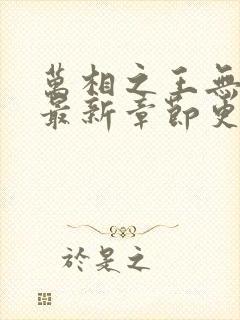 萬相之王無
最新章節更
於是之